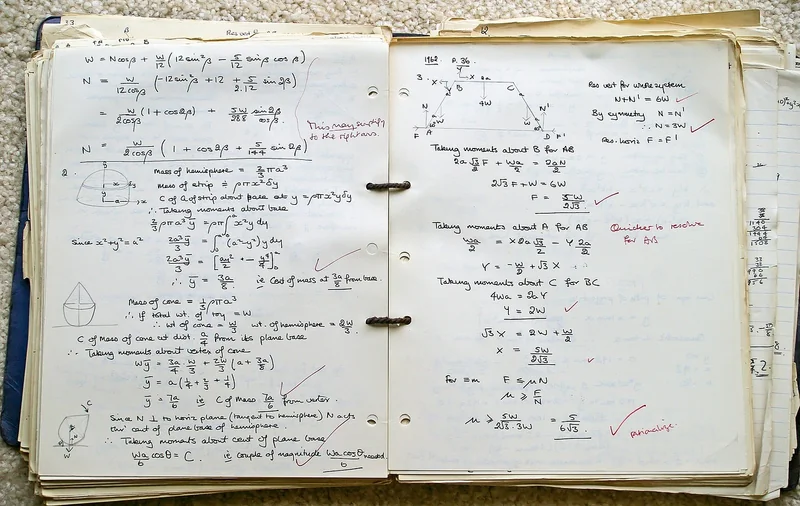 33
W = Ncosβ + W/12 (12 sin²β - 5/12 sinβ cosβ)
N = W/12cosβ (-12 sin²β + 12 + 5/2.12 sin2β)
= W/2cosβ (1 + cos2β) + 5W/288 sin2β/cosβ.
This may simplify to the right ans.
N = W/2cosβ (1 + cos2β + 5/144 sin2β)
2.
Mass of hemisphere = 2/3 πρa³
Mass of strip = ρπx²δy
C of G of strip about base als y = ρπx²yδy
∴ Taking moments about base
2/3 ρπa³ȳ = ρπ∫₀ᵃ x²y dy
Since x²+y² = a² 2a³ȳ/3 = ∫₀ᵃ (a²-y²)y dy
2a³ȳ/3 = [ay²/2 - y⁴/4]₀ᵃ
∴ ȳ = 3a/8 ie Cent of mass at 3a/8 from base.
Mass of cone = 1/3 ρπa³
∴ If total wt. of toy = W
∴ wt of cone = W/3 wt. of hemisphere = 2W/3.
C of Mass of cone at dist. a/4 from its plane base
∴ Taking moments about vertex of cone
Wȳ = 3a/4 . W/3 + 2W/3 (a + 3a/8)
ȳ = a(1/4 + 2/3 + 1/4)
ȳ = 7a/6 ie C of Mass 7a/6 from vertex.
Since N ⊥ to horiz plane (tangent to hemisphere) N acts
thro' cent of plane base of hemisphere.
∴ Taking moments about cent of plane base
Wa/6 cosθ = C. ie couple of magnitude Wa cosθ/6 needed.
1962 P. 36
3.
Y
X
2a
B
C
4W
N
N'
W
W
F
A
D
F'
Res vert for whole system
N+N' = 6W
By symmetry N = N'
∴ N = 3W
Res. horiz F = F'
Taking moments about B for AB
2a√3/2 F + Wa/2 = 2aN/2
2√3F + W = 6W
F = 5W/2√3
Taking moments about A for AB
Quicker to resolve for AB
Wa/2 = X2a√3/2 - Y 2a/2
Y = -W/2 + √3 X
Taking moments about C for BC
4Wa = 2aY
Y = 2W
√3X = 2W + W/2
X = 5W/2√3
For F ≤ μN
μ ≥ F/N
μ ≥ 5W/2√3.3W = 5/6√3
rationalize